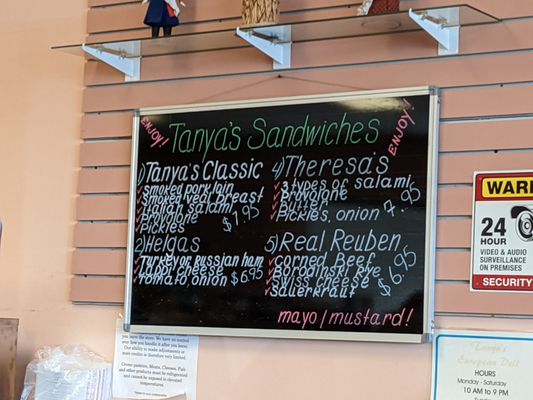 ENJOY!
Tanya's Sandwiches
ENJOY!
1) Tanya's Classic
smoked pork loin
smoked veal breast
Italian salami
Provolone
Pickles
$7.95
2) Helgas
Turkey or Russian ham
Lappi cheese
Tomato, onion $6.95
4) Theresa's
3 types of salami
Provolone
Pickles, onion 7.95
5) Real Reuben
Corned Beef
Borodinski Rye
Swiss cheese
Sauerkraut
$6.95
mayo/mustard!
24
HOUR
VIDEO & AUDIO
SURVEILLANCE
ON PREMISES
SECURITY
leave the store. We have no control
over how you handle it after you leave.
Our ability to make adjustments or
Cream pastries, Meats, Cheeses, Fish
and other products must be refrigerated
and cannot be exposed in elevated
temperatures.
Tanya's
European Deli
HOURS
Monday - Saturday
10 AM to 9 PM